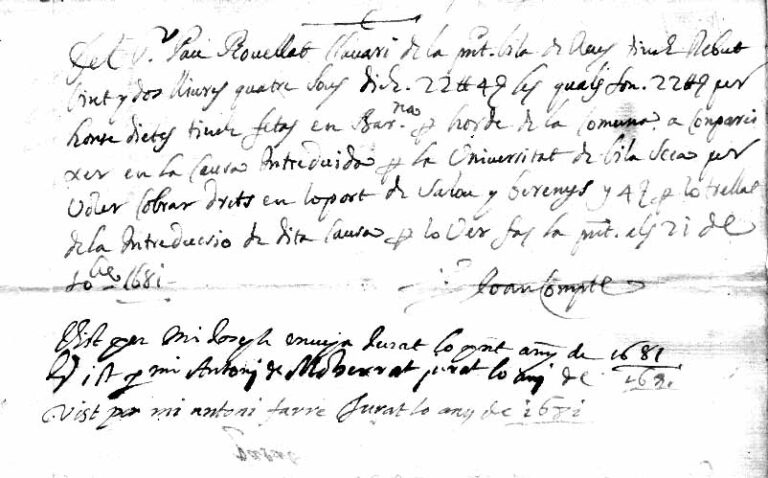 Del Sr. Pau Rovellat Clavari de la pnt. bila de Reus tinch Rebut
bint y dos lliures quatre sous dich. 22 ll 4 s les quals son. 22 ll per
honse dietes tinch fetas en Barna. p horde de la Comuna a Conparei
xer en la Causa Introduida p la Universitat de bila Seca per
voler Cobrar drets en lo port de Salou y berenys y 4 s p lo trellat
de la Introducsio de dita Causa p lo Ver fas la pnt. als 21 de
10bre 1681
Joan Compte
Vist per mi Joseph jurat lo pnt any de 1681
Vist p mi Antoni de Monserrat jurat lo any de 1681
Vist per mi antoni farre Jurat lo any de 1681